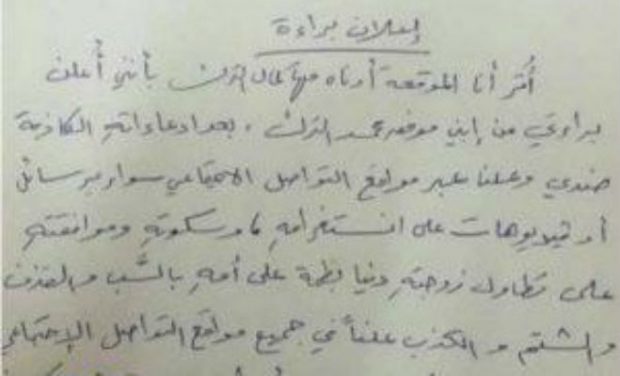 إعلان براءة
أُقر أنا الموقعة أدناه مها كمال الترك بأنني أُعلن
براءتي من إبني موفق محمد الترك ، بعد ادعاءاته الكاذبة
ضدي وعلناً عبر مواقع التواصل الاجتماعي سواء برسائل
أو فيديوهات على انستغرامه ، وسكوته وموافقته
على تطاول زوجته دنيا بطمة على أمه بالسَّب والقذف
والشتم والكذب علناً في جميع مواقع التواصل الإجتماعي